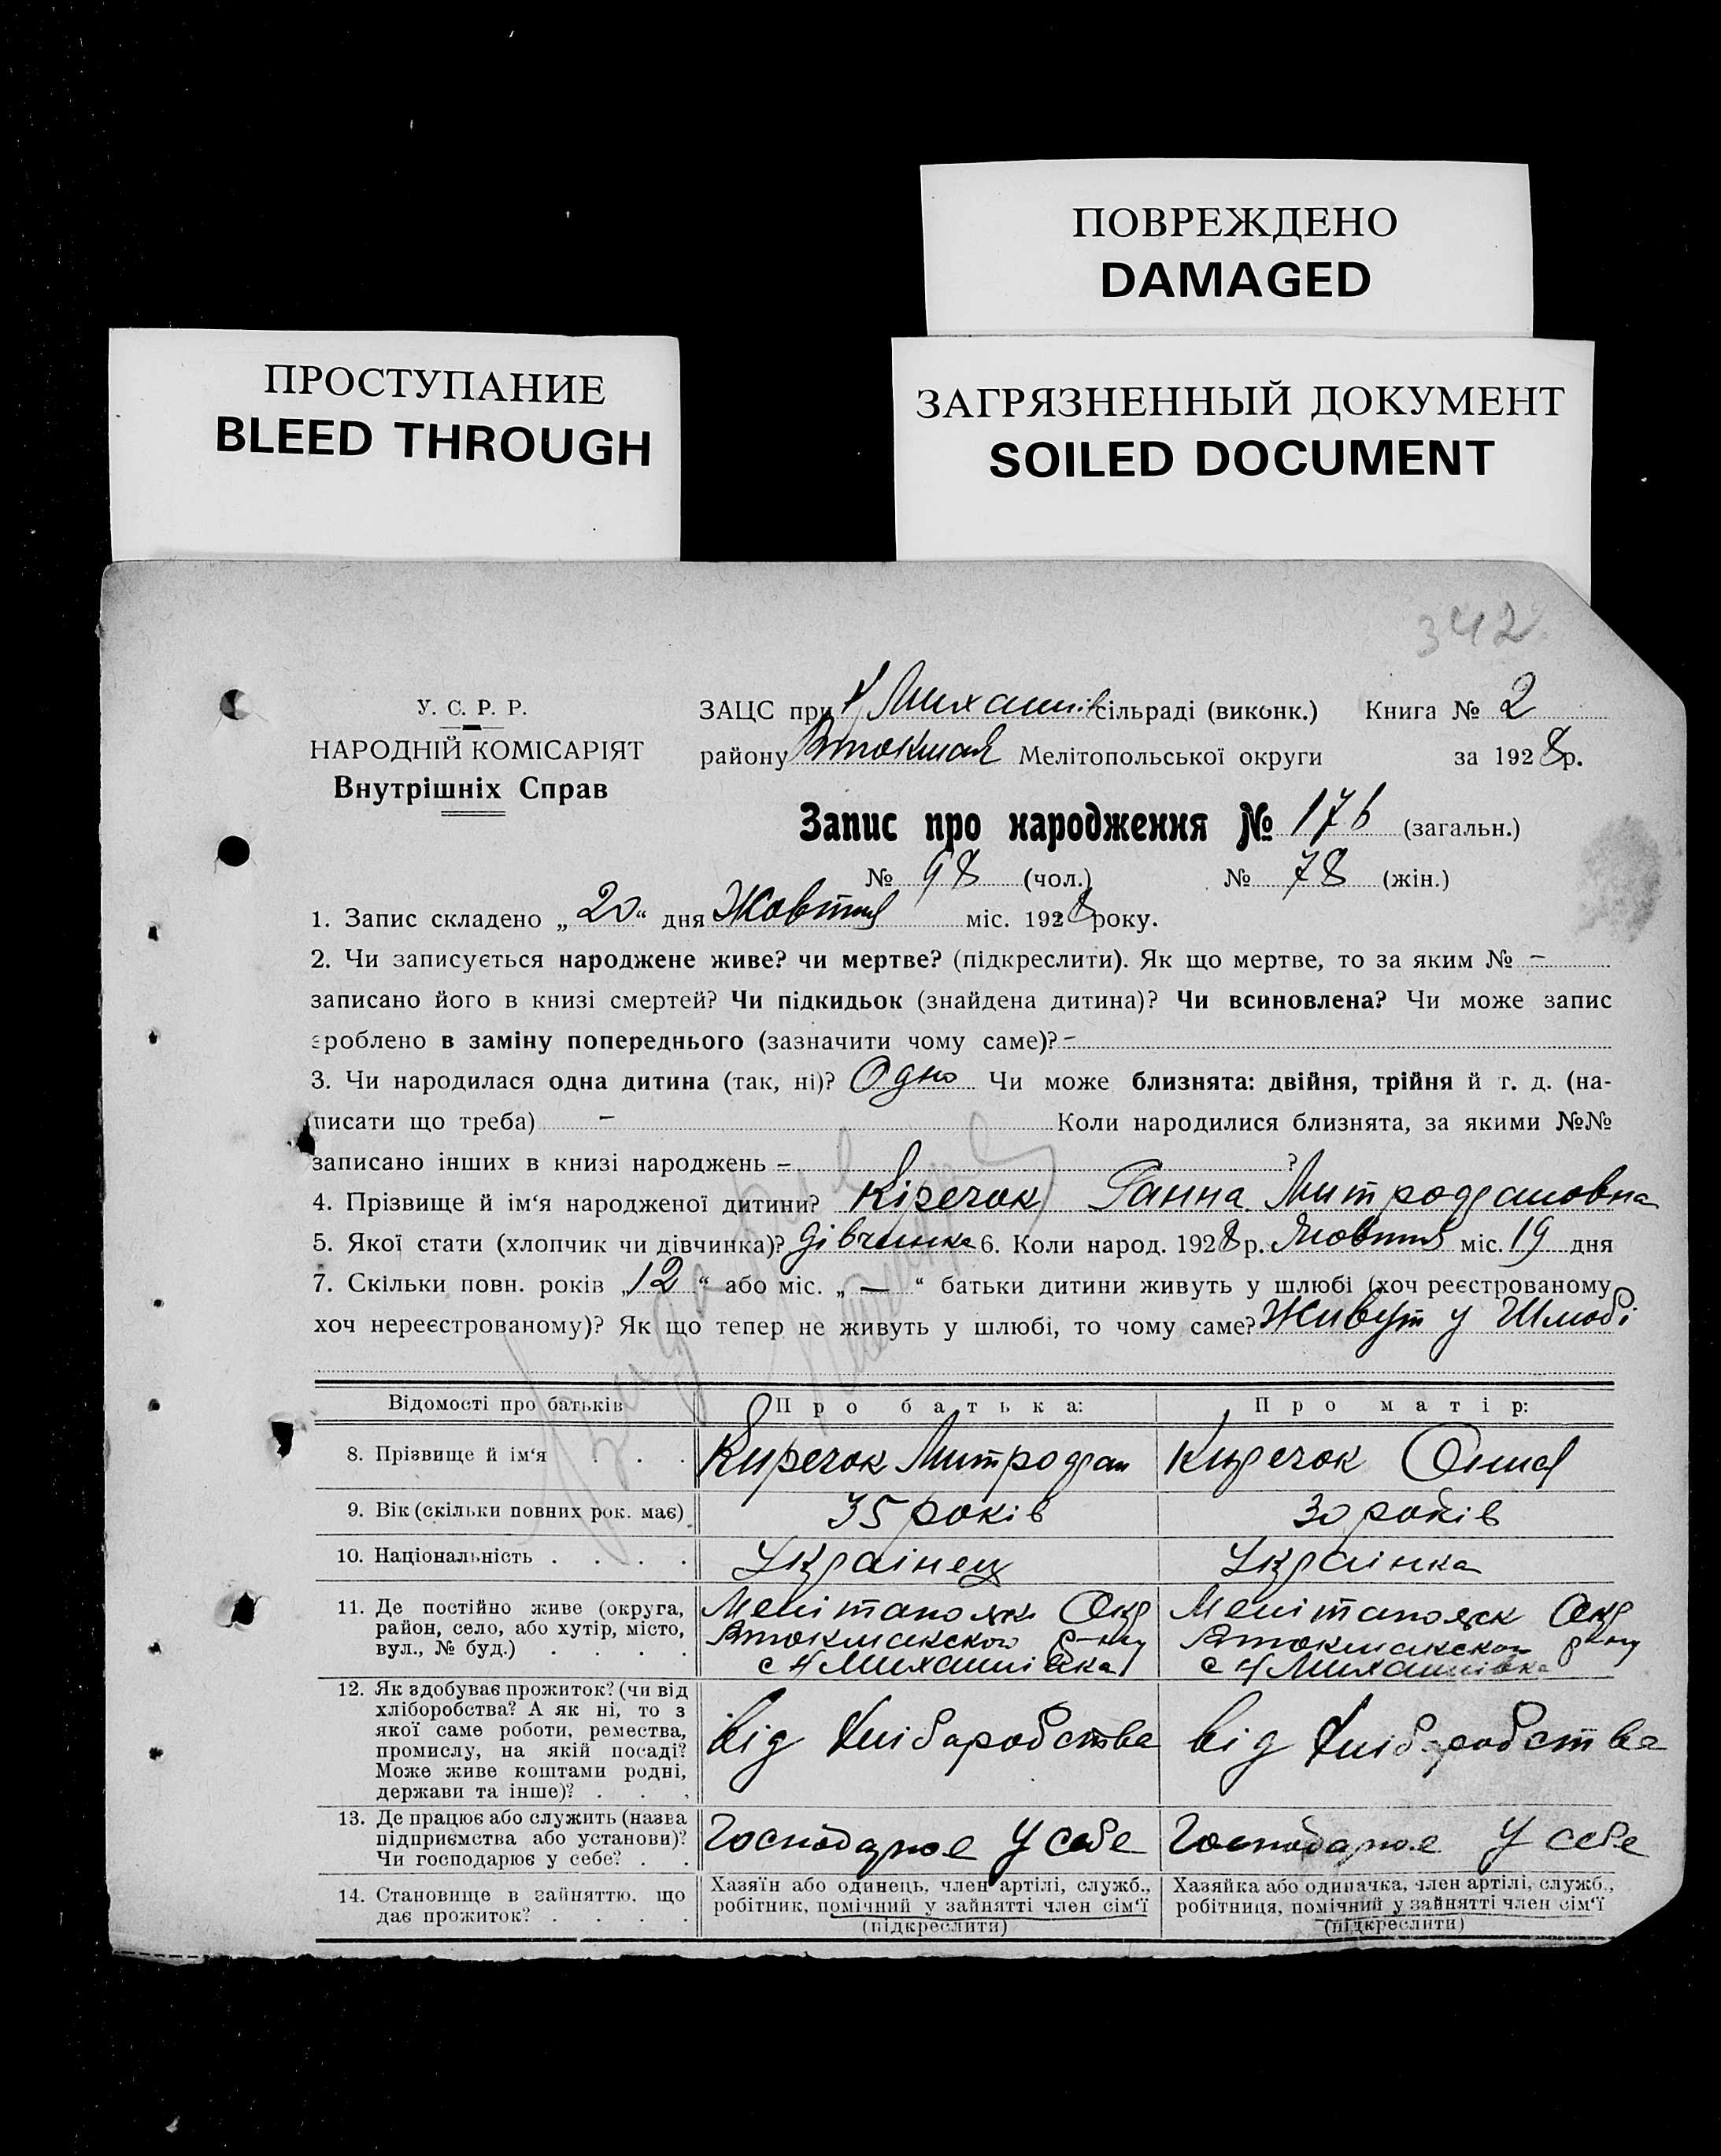 ПОВРЕЖДЕНО
DAMAGED
ПРОСТУПАНИЕ
BLEED THROUGH
ЗАГРЯЗНЕННЫЙ ДОКУМЕНТ
SOILED DOCUMENT
342
У. С. Р. Р.
НАРОДНІЙ КОМІСАРІЯТ
Внутрішніх Справ
ЗАЦС при Н Михайлів сільраді (виконк.) Книга № 2
району Втокмак Мелітопольської округи за 1928 р.
Запис про народження № 176 (загальн.)
№ 98 (чол.) № 78 (жін.)
1. Запис складено „20“ дня Жовтня міс. 1928 року.
2. Чи записується народжене живе? чи мертве? (підкреслити). Як що мертве, то за яким № –
записано його в книзі смертей? Чи підкидьок (знайдена дитина)? Чи всиновлена? Чи може запис
зроблено в заміну попереднього (зазначити чому саме)? –
3. Чи народилася одна дитина (так, ні)? Одно Чи може близнята: двійня, трійня й т. д. (на-
писати що треба) – Коли народилися близнята, за якими №№
записано інших в книзі народжень – ?
4. Прізвище й ім‘я народженої дитини? Кіречок Ганна Митрофановна
5. Якої стати (хлопчик чи дівчинка)? дівчинка 6. Коли народ. 1928 р. Жовтня міс. 19 дня
7. Скільки повн. років „12“ або міс. „—“ батьки дитини живуть у шлюбі (хоч реєстрованому
хоч нереєстрованому)? Як що тепер не живуть у шлюбі, то чому саме? Живут у Шлюбі
Відомості про батьків Про батька: Про матір:
8. Прізвище й ім‘я . . . Киречок Митрофан Киречок Ольга
9. Вік (скільки повних рок. має) 35 років 30 років
10. Національність . . . . Українец Українка
11. Де постійно живе (округа,
район, село, або хутір, місто,
вул., № буд.) . . . .
Мелітапольск Окр
Втокмакского р-ну
с Н Михайлівка
Мелітапольск Окр
Втокмакского р-ну
с Н Михайлівка
12. Як здобуває прожиток? (чи від
хліборобства? А як ні, то з
якої саме роботи, ремества,
промислу, на якій посаді?
Може живе коштами родні,
держави та інше)? . . .
від Хлібаробства від Хлібаробства
13. Де працює або служить (назва
підприємства або установи)?
Чи господарює у себе? . .
Господарює У себе Господарює У себе
14. Становище в зайняттю, що
дає прожиток? . . . .
Хазяїн або одинець, член артілі, служб.,
робітник, помічний у зайнятті член сім‘ї
(підкреслити)
Хазяйка або одиначка, член артілі, служб.,
робітниця, помічний у зайнятті член сім‘ї
(підкреслити)